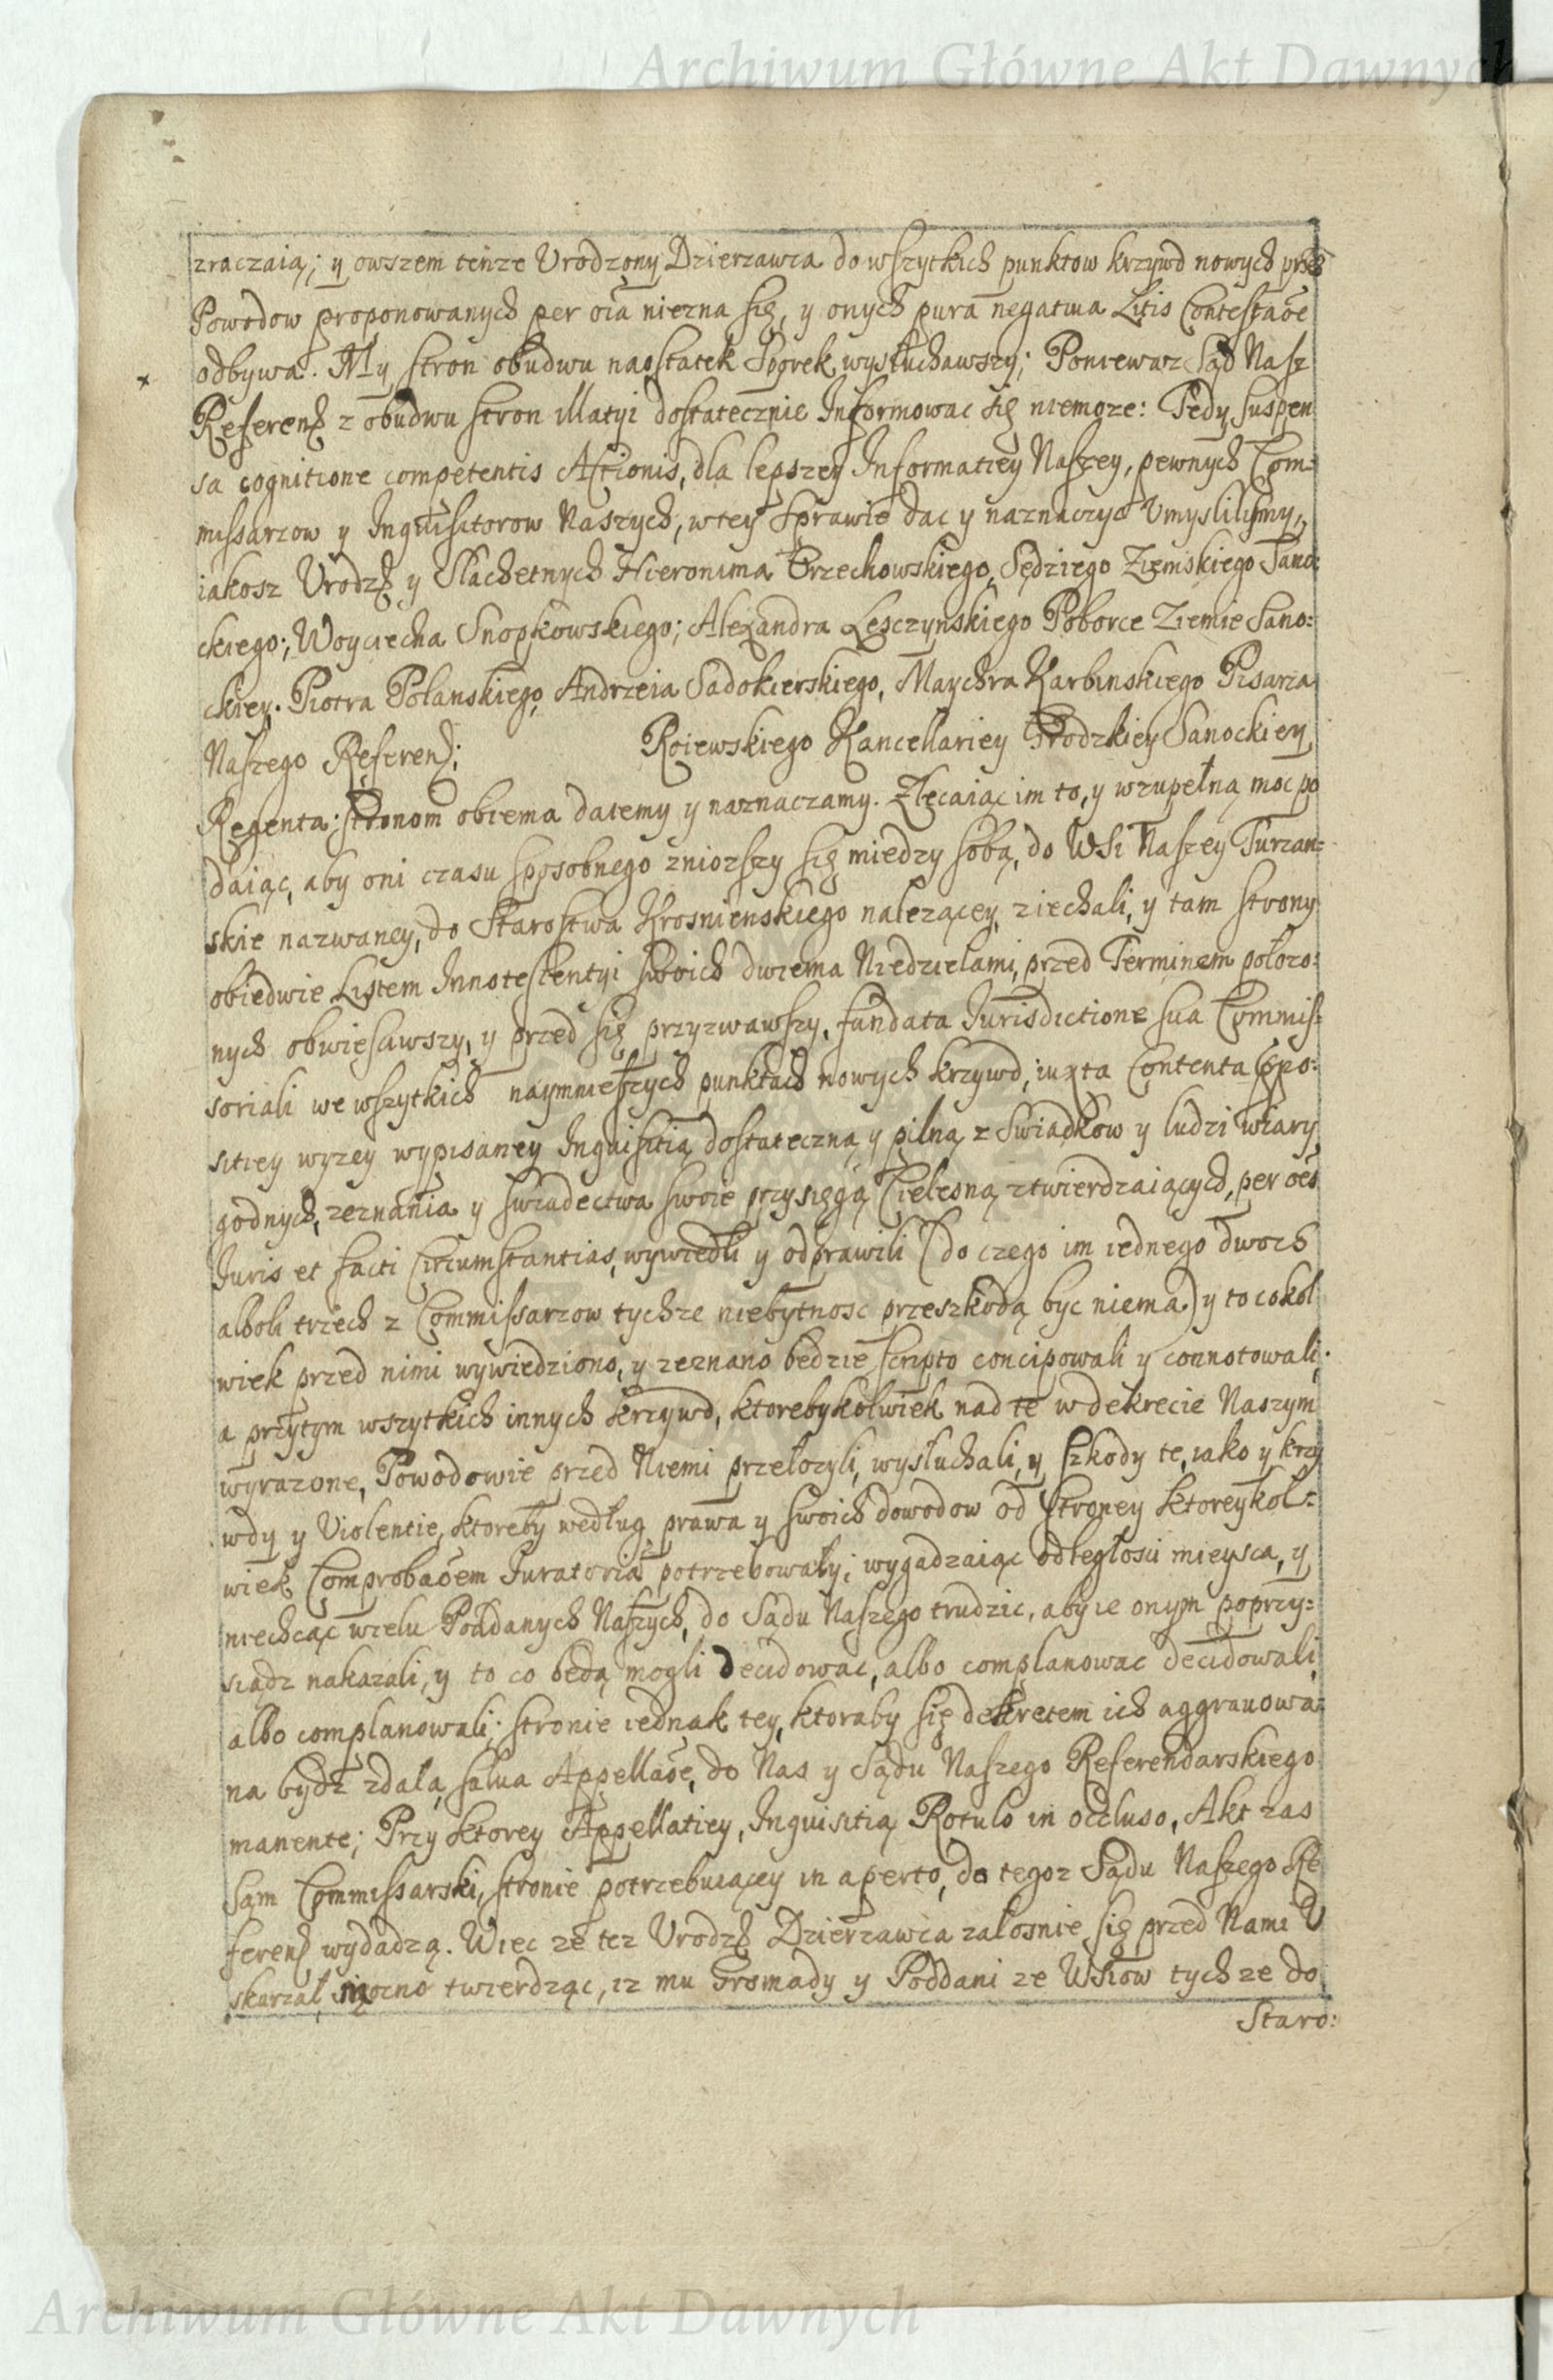 Archiwum Główne Akt Dawnych
zraczaią; y owszem tenże Urodzony Dzierzawca do wszytkich punktow krzywd nowych przez
Powodow proponowanych per oīa niezna się, y onych pura negatiua Litis Contestaōe
odbywa. My stron obudwu naostatek Sporek wysłuchawszy; Poniewaz Sąd Nasz
Referenſ z obudwu stron illatyi dostatecznie Informowac się niemoze: Tedy suspen
sa cognitione competentis Actionis, dla lepszey Informatiey Naszey, pewnych Com:
missarzow y Inquisitorow Naszych, wtey sprawie dac y naznaczyc Umyslilismy,
iakosz Urodzſ y Slachetnych Hieronima Orzechowskiego, Sędziego Ziemskiego Sano:
ckiego; Woyciecha Snopkowskiego; Alexandra Lesczynskiego Poborce Ziemie Sano:
ckiey. Piotra Polanskiego, Andrzeia Sadokierskiego, Maychra Karbinskiego Pisarza
Naszego Referenſ; Roiewskiego Kancellariey Grodzkiey Sanockiey
Regenta; stronom obiema datemy y naznaczamy. Zlecaiąc im to, y wzupełną moc po
daiąc, aby oni czasu sposobnego zniozszy się miedzy sobą, do WSi Naszey Turzan:
skie nazwaney, do Starostwa Krosnienskiego nalezącey, ziechali, y tam strony
obiedwie Listem Innotestentyi swoich dwiema Niedzielami, przed Terminem połozo:
nych obwiesciwszy, y przed się przyzwawszy, fundata Iurisdictione sua Commis:
soriali we wszytkich naymnieszych punktach nowych krzywd, iuxta Contenta Cpo:
sitiey wyzey wypisaney Inquisitią dostateczną y pilną z Swiadkow y ludzi wiary
godnych, zeznania y swiadectwa swoie przysięgą Cielesną ztwierdzaiących, per oēs
Iuris et facti Circumstantias, wywiedli y odprawili (do czego im iednego dwoch
alboli trzech z Commissarzow tychze niebytnosc przeszkodą byc niema) y to cokol
wiek przed nimi wywiedziono, y zeznano bedzie scripto concipowali y connotowali;
a przytym wszytkich innych krzywd, ktorebykolwiek nad te w dekrecie Naszym
wyrazone, Powodowie przed Niemi przełozyli, wysłuchali, y szkody te, iako y krzy
wdy y Violentie, ktoreby według prawa y swoich dowodow od Stroney ktoreykol:
wiek Comprobaōem Iuratoriā potrzebowały; wygadzaiąc odległosci mieysca, y
niechcąc wielu Poddanych Naszych, do Sądu Naszego trudzic, aby ie onym poprzy:
siądz nakazali, y to co będą mogli decidowac, albo complanowac decidowali
albo complanowali; stronie iednak tey, ktoraby się dekretem ich aggrauowa:
na bydz zdała, salua Appellaōe, do Nas y Sądu Naszego Referendarskiego
manente; Przy ktorey Appellatiey, Inquisitią Rotulo in occluso, Akt zas
Sąm Commissarski, stronie potrzebuiącey in aperto, do tegoz Sądu Naszego Re
ferenſ wydadzą. Wiec ze tez Urodzſ Dzierzawca załosnie się przed Nami U
skarzał mocno twierdząc, iz mu Gromady y Poddani ze WSiow tychze do
Staro:
Archiwum Główne Akt Dawnych